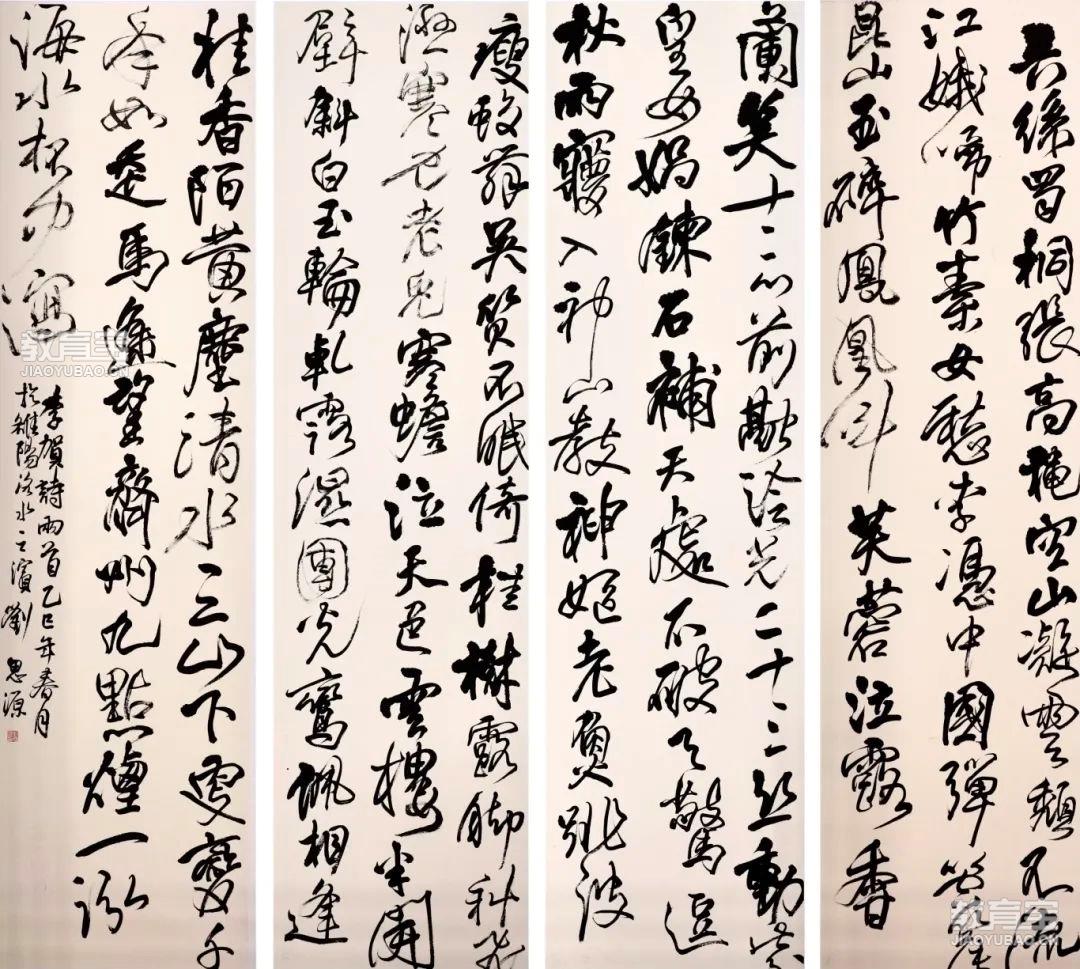 吳絲蜀桐張高穐空山凝雲頹不流
江娥啼竹素女愁李憑中國彈箜篌
昆山玉碎鳳凰叫芙蓉泣露香
蘭笑十二門前融冷光二十三絲動紫
皇女媧鍊石補天處石破天驚逗
秋雨夢入神山教神嫗老魚跳波
瘦蛟舞吳質不眠倚桂樹露腳斜飛
濕寒兔老兔寒蟾泣天色雲樓半開
壁斜白玉輪軋露濕團光鸞佩相逢
桂香陌黃塵清水三山下更變千
年如走馬遙望齊州九點煙一泓
海水杯中瀉
李賀詩兩首乙巳年春月
於雒陽洛水之濱劉思源
教育宝
JIAOYUBAO.CN
教育宝
JIAOYUBAO.CN